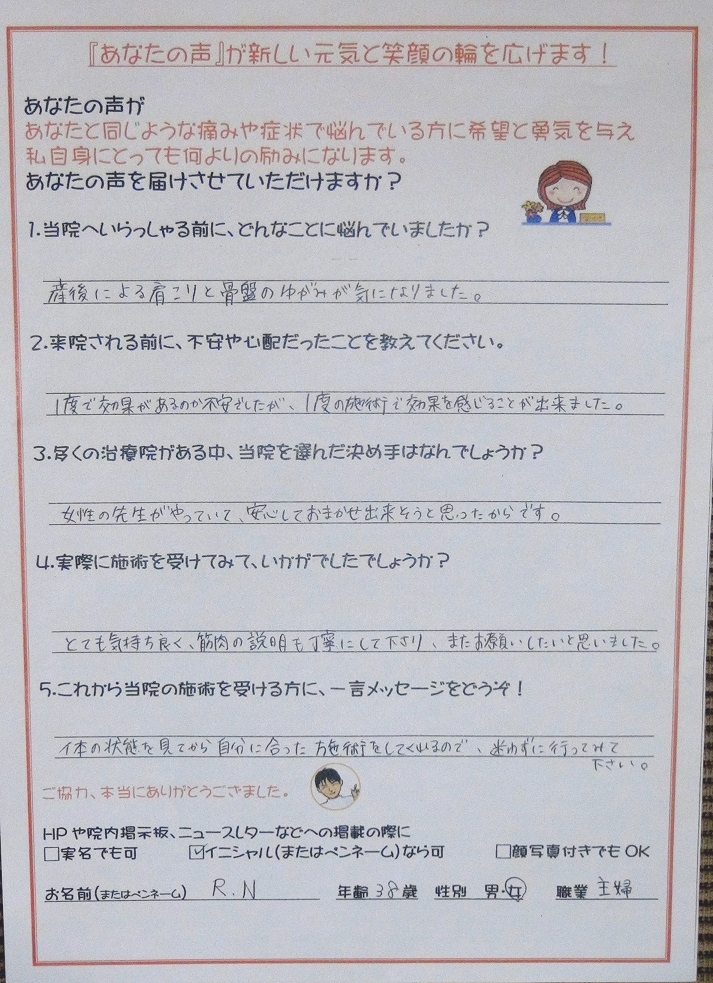 『あなたの声』が新しい元気と笑顔の輪を広げます！
あなたの声が
あなたと同じような痛みや症状で悩んでいる方に希望と勇気を与え
私自身にとっても何よりの励みになります。
あなたの声を届けさせていただけますか？
1.当院へいらっしゃる前に、どんなことに悩んでいましたか？
産後による肩こりと骨盤のゆがみが気になりました。
2.来院される前に、不安や心配だったことを教えてください。
1度で効果があるのか不安でしたが、1度の施術で効果を感じることが出来ました。
3.多くの治療院がある中、当院を選んだ決め手はなんでしょうか？
女性の先生がやっていて、安心しておまかせ出来そうと思ったからです。
4.実際に施術を受けてみて、いかがでしたでしょうか？
とても気持ち良く、筋肉の説明も丁寧にして下さり、またお願いしたいと思いました。
5.これから当院の施術を受ける方に、一言メッセージをどうぞ！
体の状態を見てから自分に合った施術をしてくれるので、迷わずに行ってみて
下さい。
ご協力、本当にありがとうございました。
HPや院内掲示板、ニュースレターなどへの掲載の際に
□実名でも可 ☑イニシャル(またはペンネーム)なら可 □顔写真付きでもOK
お名前(またはペンネーム) R.N 年齢38歳 性別 男・女 職業 主婦